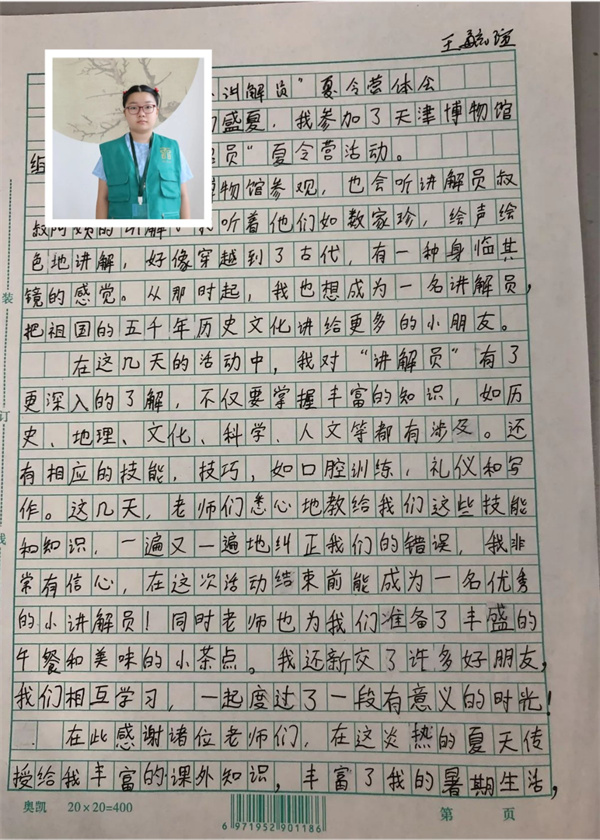 王毓瑄
讲解员”夏令营体会
盛夏，我参加了天津博物馆
组 员”夏令营活动。
博物馆参观，也会听讲解员叔
叔阿姨的讲解。我听着他们如数家珍，绘声绘
色地讲解，好像穿越到了古代，有一种身临其
镜的感觉。从那时起，我也想成为一名讲解员，
把祖国的五千年历史文化讲给更多的小朋友。
在这几天的活动中，我对“讲解员”有了
更深入的了解，不仅要掌握丰富的知识，如历
史、地理、文化、科学、人文等都有涉及。还
有相应的技能，技巧，如口腔训练，礼仪和写
作。这几天，老师们悉心地教给我们这些技能
和知识，一遍又一遍地纠正我们的错误，我非
常有信心，在这次活动结束前能成为一名优秀
的小讲解员！同时老师也为我们准备了丰盛的
午餐和美味的小茶点。我还新交了许多好朋友，
我们相互学习，一起度过了一段有意义的时光！
在此感谢诸位老师们，在这炎热的夏天传
授给我丰富的课外知识，丰富了我的暑期生活，
装
订
线
奥凯 20×20=400
6 971952 901186
第 页